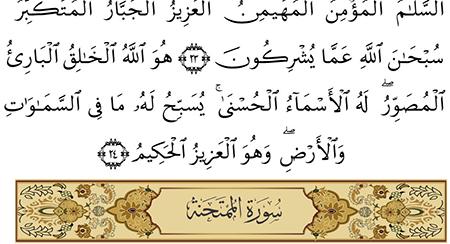 ٱلسَّلَٰمُ ٱلْمُؤْمِنُ ٱلْمُهَيْمِنُ ٱلْعَزِيزُ ٱلْجَبَّارُ ٱلْمُتَكَبِّرُ
سُبْحَٰنَ ٱللَّهِ عَمَّا يُشْرِكُونَ ٢٣ هُوَ ٱللَّهُ ٱلْخَٰلِقُ ٱلْبَارِئُ
ٱلْمُصَوِّرُ ۖ لَهُ ٱلْأَسْمَآءُ ٱلْحُسْنَىٰ ۚ يُسَبِّحُ لَهُۥ مَا فِى ٱلسَّمَٰوَٰتِ
وَٱلْأَرْضِ ۖ وَهُوَ ٱلْعَزِيزُ ٱلْحَكِيمُ ٢٤
سُورَةُ المُمْتَحنَةِ